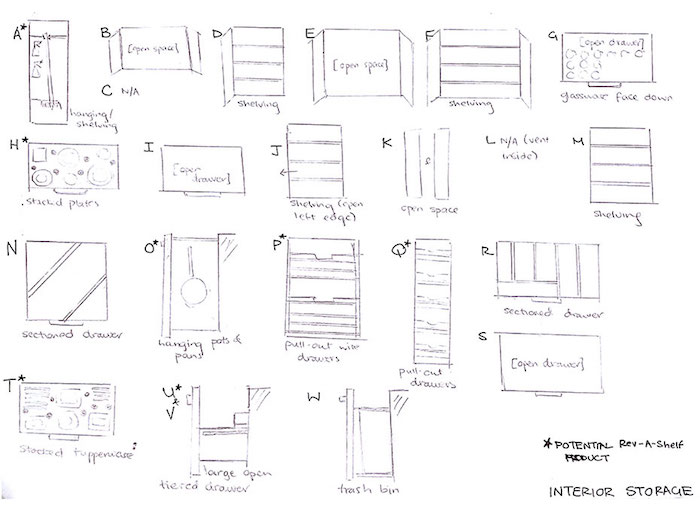 A* hanging/
shelving
B [open space]
C N/A
D shelving
E [open space]
F shelving
G [open drawer]
glassware face down
H* stacked plates
I [open
drawer]
J shelving (open
left edge)
K open space
L N/A (vent
inside)
M shelving
N sectioned drawer
O* hanging pots &
pans
P* pull-out wide
drawers
Q* pull-out
drawers
R sectioned drawer
S [open drawer]
T* stacked tupperware
U*
V* large open
tiered drawer
W trash bin
* POTENTIAL Rev-A-Shelf
PRODUCT
INTERIOR STORAGE